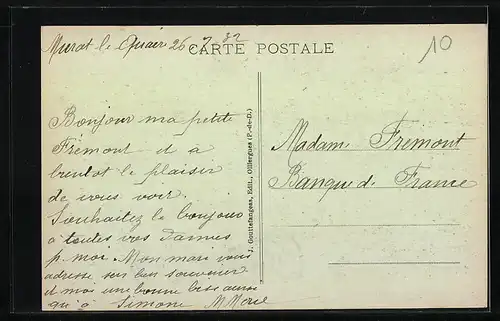 Murat le Quaire 26 7 32
CARTE POSTALE
10
Bonjour ma petite
Fremont et a
bientot le plaisir
de vous voir.
Souhaitez le bonjour
à toutes ces Dames
p. moi. Mon mari vous
adresse son bon souvenir
et moi une bonne bise aussi
qu'à Simone M
J. Gouttefangeas, Edit., Olliergues (P.-de-D.)
Madame Fremont
Banque de France